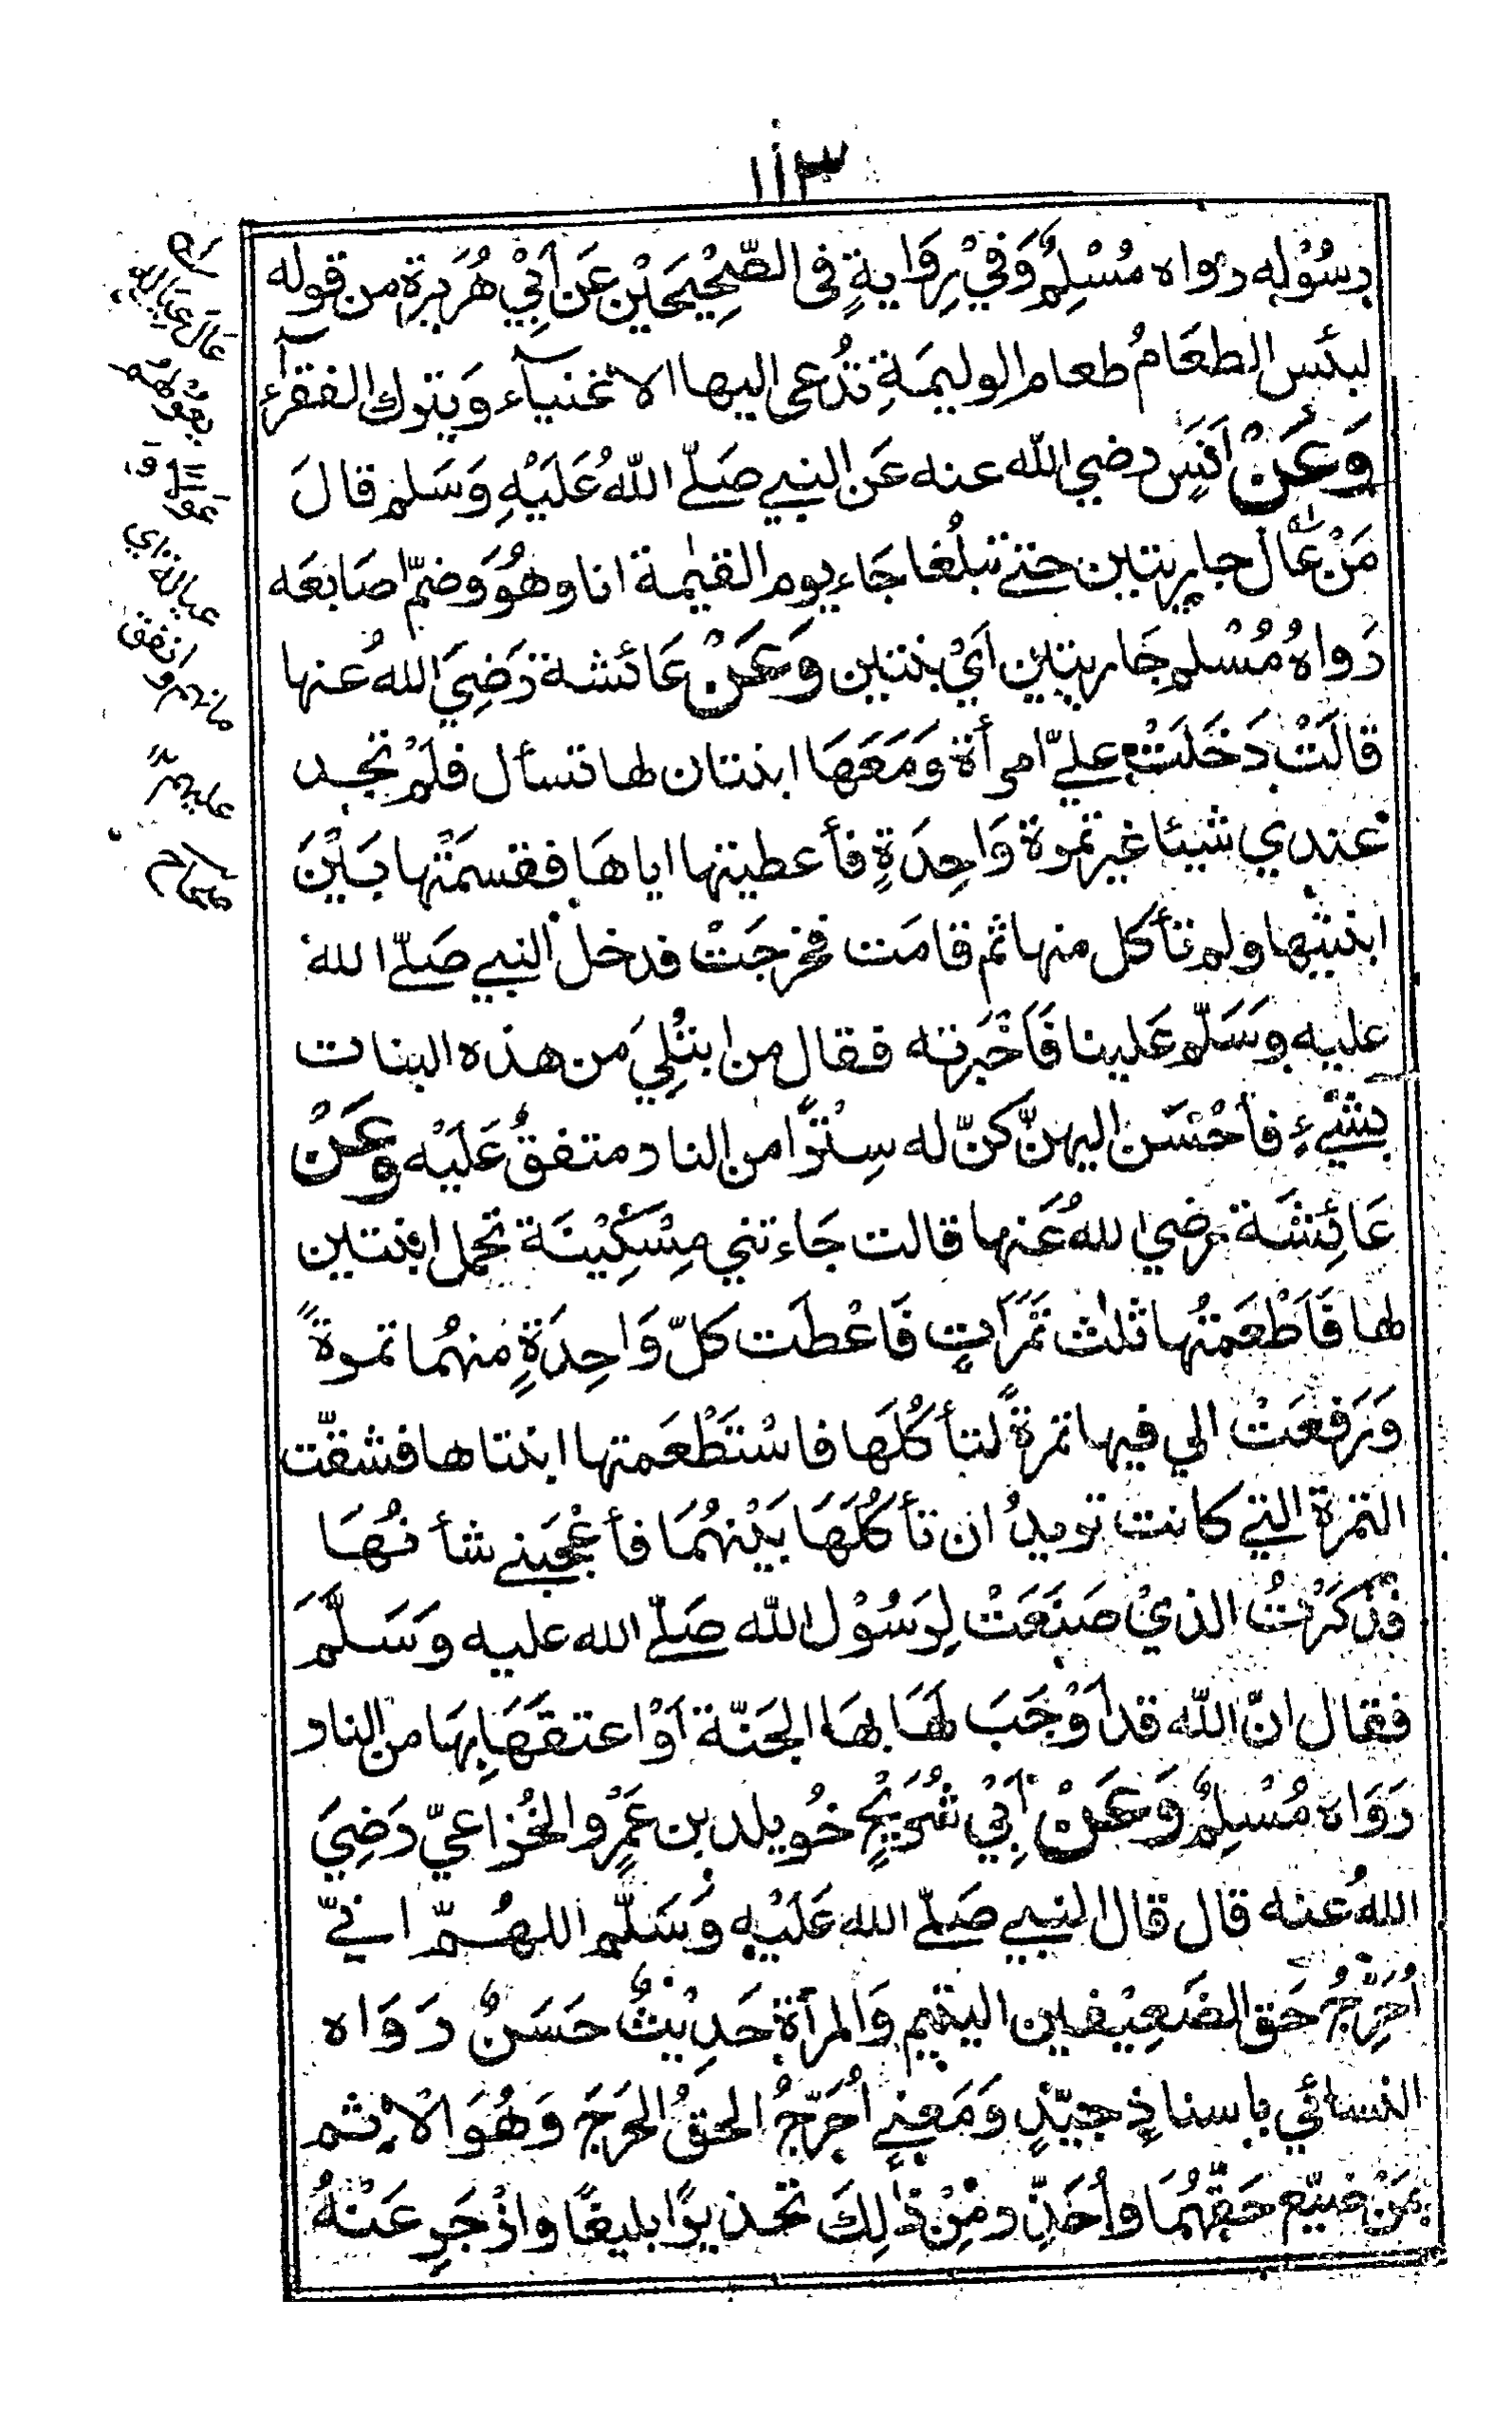 ١١٣
رسُوْلِه رواه مُسْلِمٌ وَفِيْ رِوَايةٍ فى الصَّحِيْحَيْنِ عَنْ اَبِيْ هُرَيْرة من قوله
لبئس الطعَامُ طعام الوليمَةِ تُدعى اليها الاغنيآء ويترك الفقرآء
وَعَنْ اَنَسٍ رضي الله عنه عَن النبي صَلّے اللّٰهُ عَلَيْهِ وَسَلم قالَ
مَنْ عَالَ جاريتين حتے تبلُغا جَاء يوم القيٰمة انا وهُوَ وَضمّ اصَابعَه
رَواهُ مُسْلم جَاريتين اَيْ بنتين وَعَنْ عَائشة رَضِيَ اللهُ عنها
قالَتْ دَخَلَتْ عليّ امرأة وَمَعَهَا ابنتان لها تسأل فلَمْ تجد
عندي شيئا غير تمرة وَاحِدَةٍ فأعطيتها اياهَا فقسمَتْها بَيْنَ
ابنتيها ولم تأكل منها ثم قامَت فخرجَتْ فدخل النبي صَلّے الله
عليه وَسَلّم عَلينا فَاَخْبَرته فقال من ابتُلِيَ من هذه البنات
بشَيْءٍ فأحْسَن اليهنّ كنّ له سِتْرًا من النار متفقٌ عَلَيْه وعَنْ
عَائِشَة رضي اللهُ عَنها قالت جَاءتني مِسْكِيْنَة تحمل ابنتين
لها فَاَطْعَمتُها ثلٰث تَمَرَاتٍ فَاعْطَت كلّ وَاحِدَةٍ منهُما تمرةً
وَرَفعَتْ الي فيها تمرةً لتأكُلَها فاسْتَطْعَمتها ابنتاها فشقّت
التمرة التي كانت تريدُ ان تأكُلَهَا بَيْنهُمَا فأعْجَبَنے شأنُهَا
فذكَرْتُ الذيْ صَنَعَتْ لِرَسُوْل اللّٰه صَلّے الله عليه وَسَلَّمَ
فقال انّ اللّٰه قد اَوْجَبَ لَهَا بهَا الجَنّة اَوْ اعتقَهَا بِهَا من النار
رَوَاه مُسْلِمٌ وَعَنْ اَبِيْ شُرَيْحٍ خُويلد بن عَمْرٍو الخُزاعيّ رَضِيَ
اللهُ عنه قال قال النبي صَلّے الله عَلَيْهِ وَسَلّم اللهُمّ انيّ
اُحَرِّجُ حَق الضَعِيْفين اليتيم وَالمرأة حَدِيْثٌ حَسَنٌ رَوَاه
النسائي باسنادٍ جيّدٍ وَمَعنٰے اُحَرّجُ الحقُ الحَرَجَ وَهُوَ الاثم
بمَنْ ضيّع حَقّهُمَا واُحَذّر مِنْ ذٰلِكَ تحذيرًا بليغًا وازْجَر عَنْهُ
عَالَ عِيَالَه
يعُولهُمْ
عَولا و
عيالة اي
انفق
عليهم